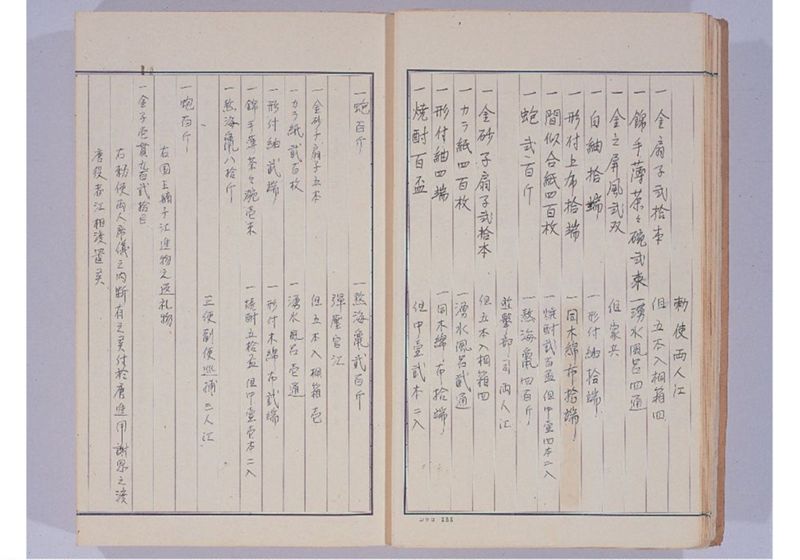 勅使両人江
一金扇子弐拾本 但五本入桐箱四
一錦手薄茶々碗弐束 一湧水風呂四通
一金之屏風弐双 但家共
一白紬拾端 一形付紬拾端
一形付上布拾端 一同木綿布拾端
一間似合紙四百枚 一焼酎弐百盃但中壷四本ニ入
一蚫弐百斤 一熬海鼠四百斤
都司両人江
一金砂子扇子弐拾本 但五本入桐箱四
一カラ紙四百枚 一湧水風呂弐通
一形付紬四端 一同木綿布拾端
一焼酎百盃 但中壷弐本ニ入
コクヨ 155
一蚫百斤 一熬海鼠弐百斤
弾壓官江
一金砂子扇子五本 但五本入桐箱壱
一カラ紙弐百枚 一湧水風呂壱通
一形付紬弐端 一形付木綿布弐端
一錦手薄茶々碗壱束 一焼酎五拾盃但中壷壱本ニ入
一熬海鼠八拾斤
三使副使巡捕二人江
一蚫百斤
右国王子江進物之返礼物
一金子壱貫九百弐拾目
右勅使両人席儀之内断有之矣付於唐進用謝恩之渡
唐役者江相渡置矣